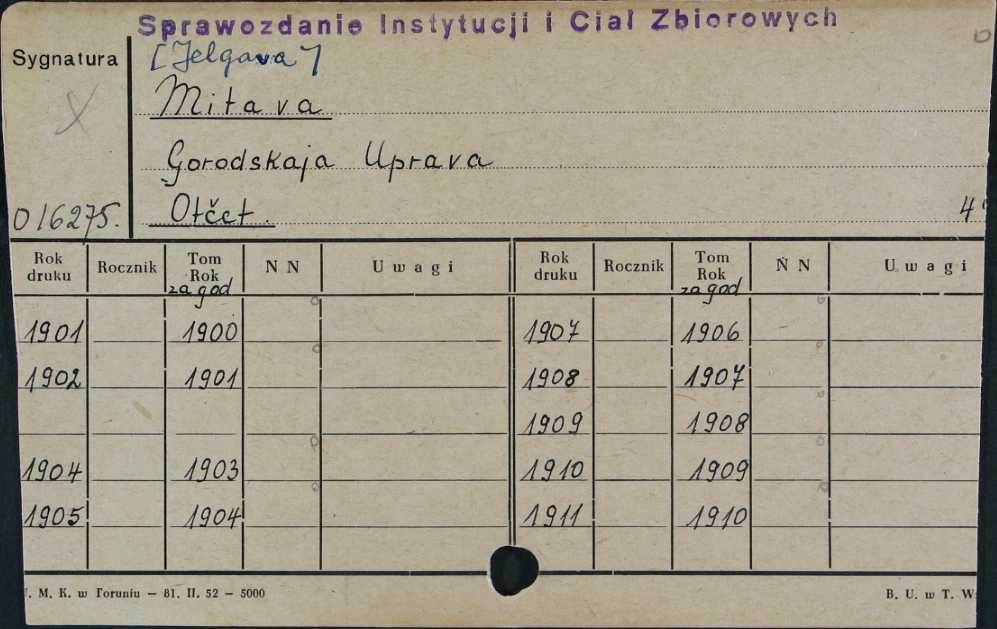 Sprawozdanie Instytucji i Ciał Zbiorowych
Sygnatura
[Jelgava]
Mitava
Gorodskaja Uprava
016275.
Otčet.
4°
Rok druku Rocznik Tom Rok NN Uwagi Rok druku Rocznik Tom Rok NN Uwagi
za god za god
1901 1900 1907 1906
1902 1901 1908 1907
1909 1908
1904 1903 1910 1909
1905 1904 1911 1910
. M. K. w Toruniu — 81. II. 52 — 5000
B. U. w T. W